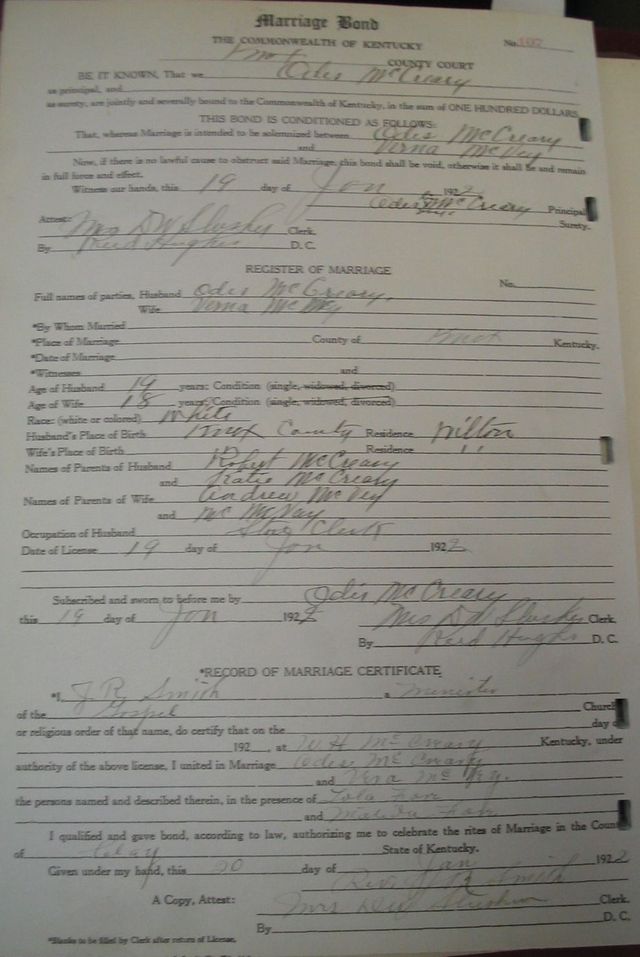 Marriage Bond
THE COMMONWEALTH OF KENTUCKY No. 107
Knox COUNTY COURT
BE IT KNOWN, That we Odis McCreary
as principal, and
as surety, are jointly and severally bound to the Commonwealth of Kentucky, in the sum of ONE HUNDRED DOLLARS
THIS BOND IS CONDITIONED AS FOLLOWS:
That, whereas Marriage is intended to be solemnized between Odis McCreary
and Verna McVey
Now, if there is no lawful cause to obstruct said Marriage, this bond shall be void, otherwise it shall be and remain
in full force and effect.
Witness our hands, this 19 day of Jan 1922
Odis McCreary Principal
Surety.
Attest: Mrs D W Slusher Clerk.
By Read Hughes D. C.
REGISTER OF MARRIAGE
No.
Full names of parties, Husband Odis McCreary,
Wife Verna McVey
*By Whom Married
*Place of Marriage County of Knox Kentucky.
*Date of Marriage
*Witnesses and
Age of Husband 19 years; Condition (single, widowed, divorced)
Age of Wife 18 years; Condition (single, widowed, divorced)
Race: (white or colored) White
Husband's Place of Birth Knox County Residence Wilton
Wife's Place of Birth Residence "
Names of Parents of Husband Robert McCreary
and Katie McCreary
Names of Parents of Wife Andrew McVey
and McVay
Occupation of Husband Store Clerk
Date of License 19 day of Jan 1922
Subscribed and sworn to before me by Odis McCreary
this 19 day of Jan 1922 Mrs D W Slusher Clerk.
By Read Hughes D. C.
*RECORD OF MARRIAGE CERTIFICATE
*I, J R Smith a Minister
of the Gospel Church
or religious order of that name, do certify that on the day of
192 , at W H McCreary Kentucky, under
authority of the above license, I united in Marriage Odis McCreary
and Vera McVey.
the persons named and described therein, in the presence of Lola
and
I qualified and gave bond, according to law, authorizing me to celebrate the rites of Marriage in the Coun
of Clay State of Kentucky.
Given under my hand, this 20 day of Jan 1922
Rev J R Smith
A Copy, Attest: Mrs D W Slusher Clerk.
By D. C.
*Blanks to be filled by Clerk after return of License.